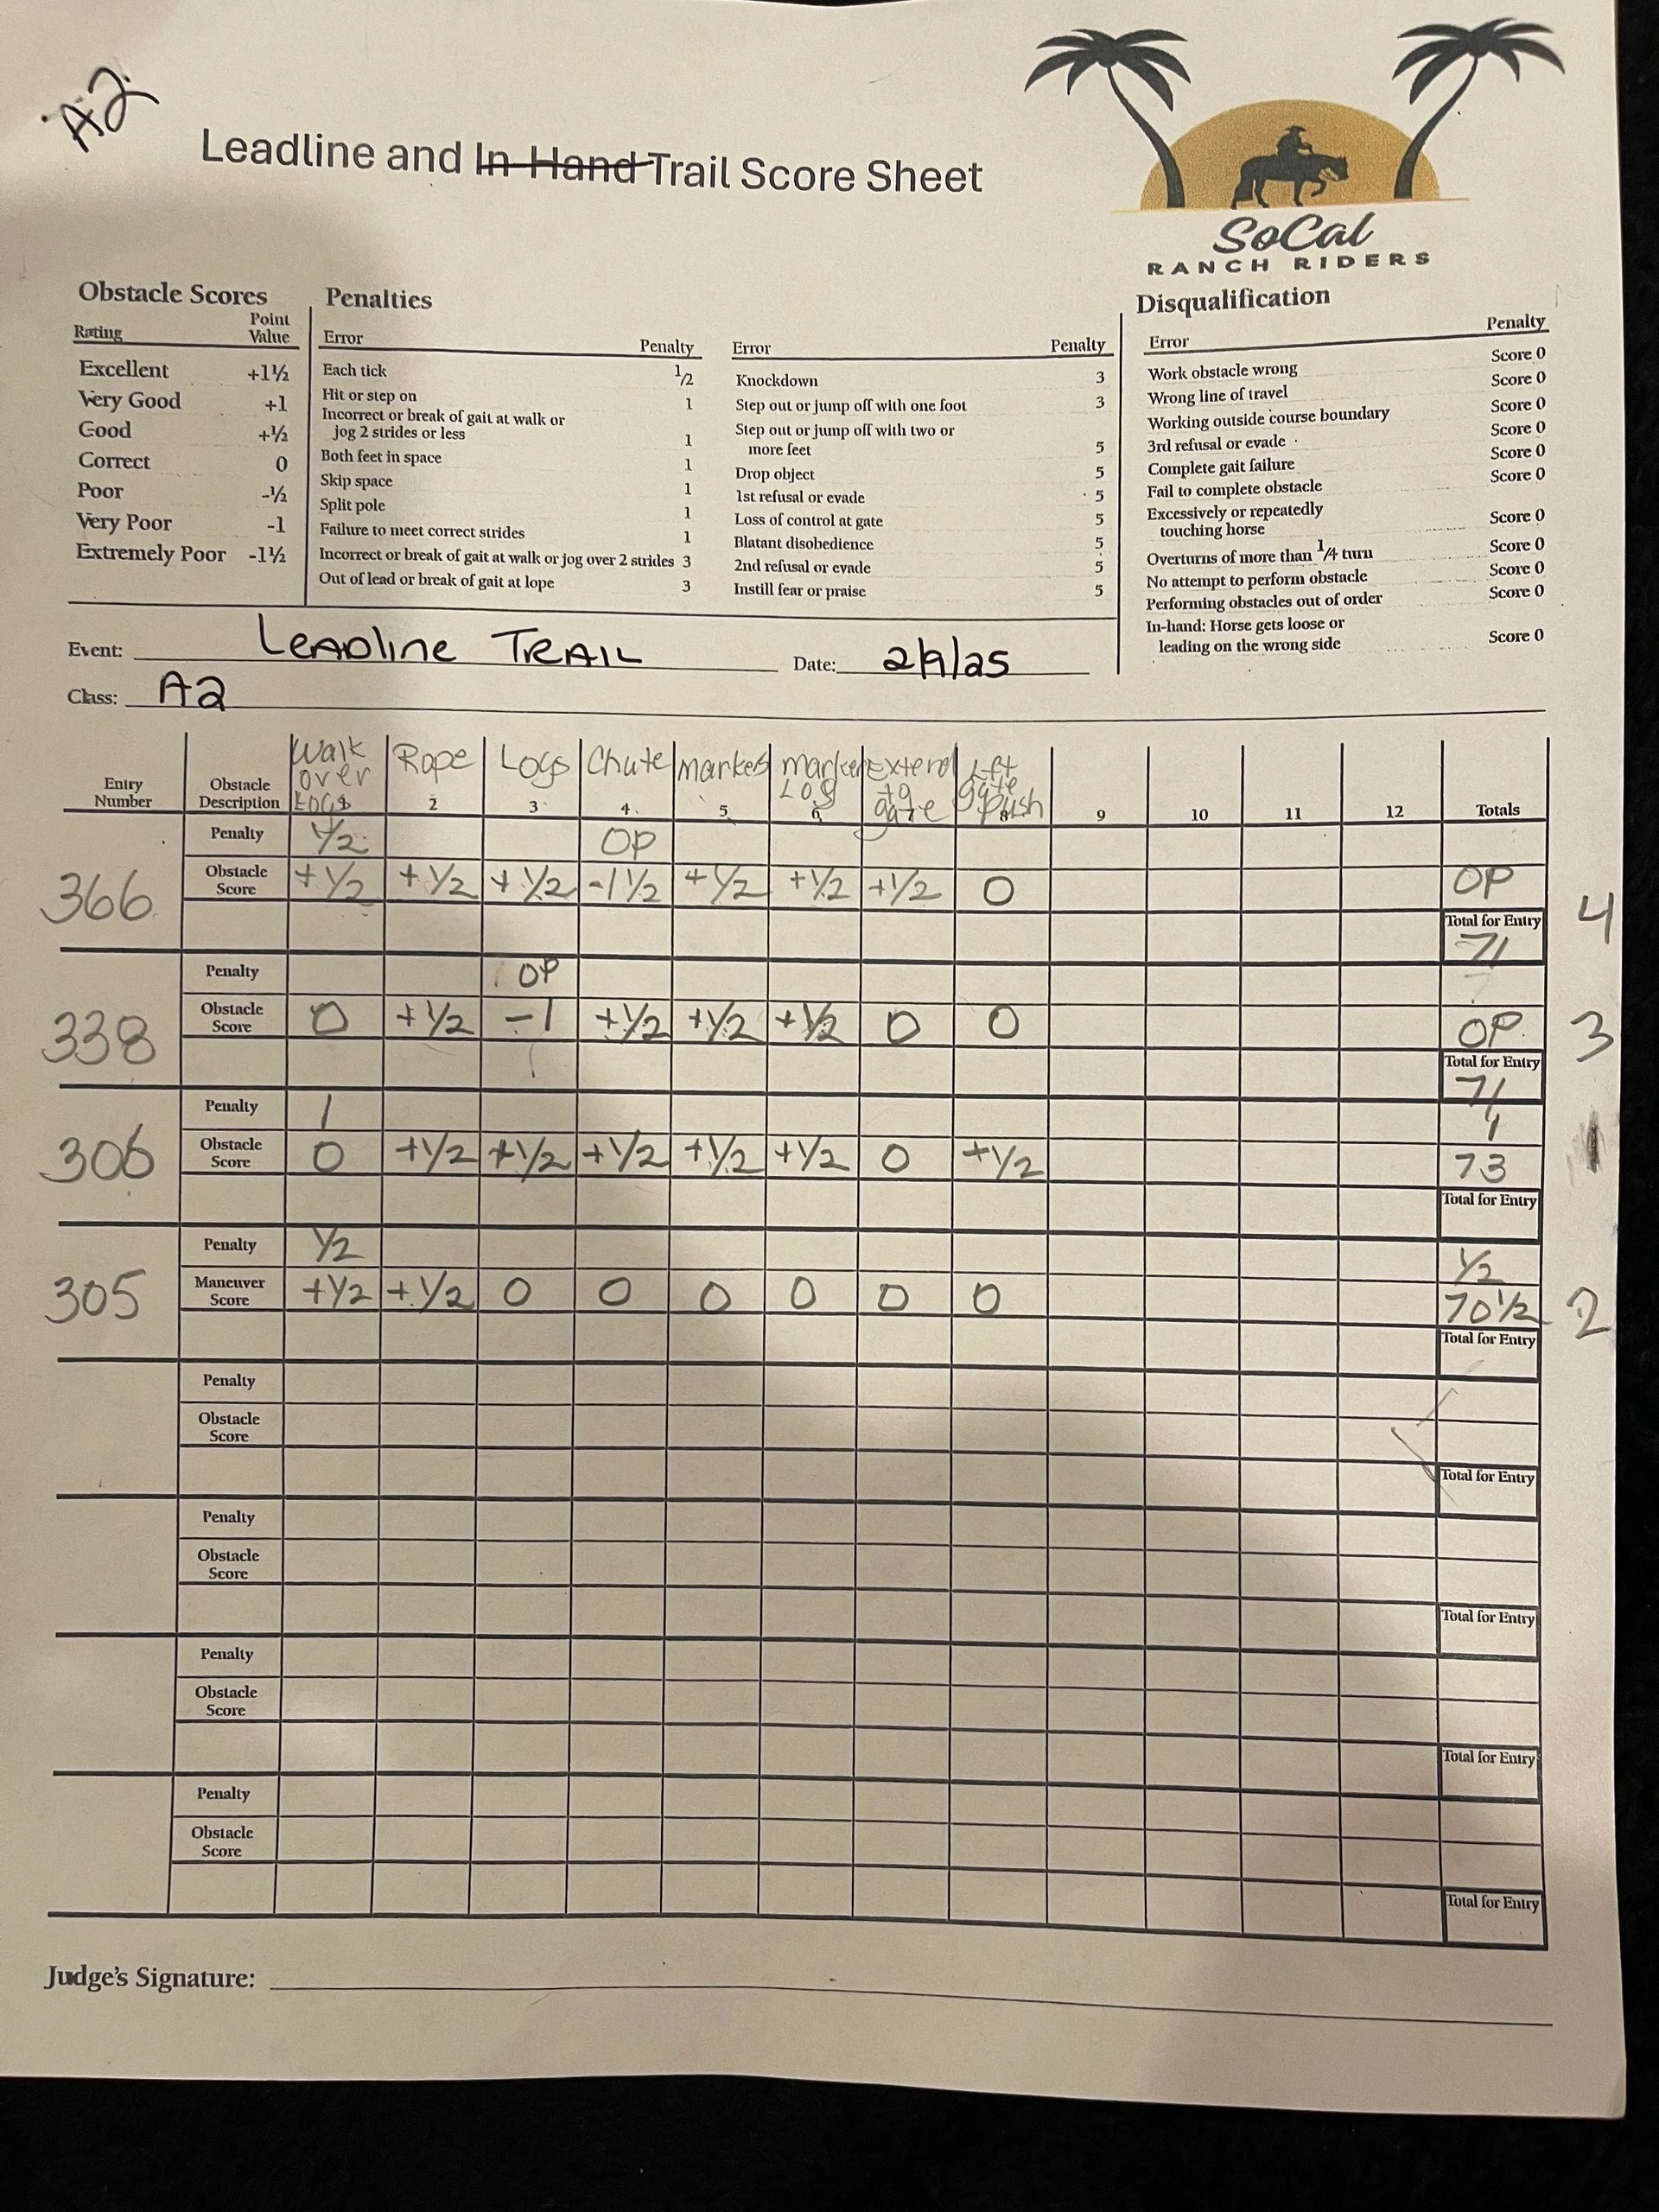 A2
Leadline and In-Hand Trail Score Sheet
SoCal
RANCH RIDERS
Obstacle Scores
Rating Point Value
Excellent +1½
Very Good +1
Good +½
Correct 0
Poor -½
Very Poor -1
Extremely Poor -1½
Penalties
Error Penalty
Each tick 1/2
Hit or step on 1
Incorrect or break of gait at walk or
jog 2 strides or less 1
Both feet in space 1
Skip space 1
Split pole 1
Failure to meet correct strides 1
Incorrect or break of gait at walk or jog over 2 strides 3
Out of lead or break of gait at lope 3
Error Penalty
Knockdown 3
Step out or jump off with one foot 3
Step out or jump off with two or
more feet 5
Drop object 5
1st refusal or evade 5
Loss of control at gate 5
Blatant disobedience 5
2nd refusal or evade 5
Instill fear or praise 5
Disqualification
Error Penalty
Work obstacle wrong Score 0
Wrong line of travel Score 0
Working outside course boundary Score 0
3rd refusal or evade Score 0
Complete gait failure Score 0
Fail to complete obstacle Score 0
Excessively or repeatedly
touching horse Score 0
Overturns of more than 1/4 turn Score 0
No attempt to perform obstacle Score 0
Performing obstacles out of order Score 0
In-hand: Horse gets loose or
leading on the wrong side Score 0
Event: Leadline Trail Date: 2/9/25
Class: A2
Entry Number Obstacle Description Walk over Logs Rope 2 Logs 3 Chute 4 marked 5 Log 6 Extend to gate Lft gate push 8 9 10 11 12 Totals
Penalty 1/2 OP
366 Obstacle Score +1/2 +1/2 +1/2 -1 1/2 +1/2 +1/2 +1/2 0 OP 4
Total for Entry
71
Penalty OP
338 Obstacle Score 0 +1/2 -1 +1/2 +1/2 +1/2 0 0 OP 3
Total for Entry
71
Penalty 1 1
306 Obstacle Score 0 +1/2 +1/2 +1/2 +1/2 +1/2 0 +1/2 73 1
Total for Entry
Penalty 1/2 1/2
305 Maneuver Score +1/2 +1/2 0 0 0 0 0 0 70 1/2 2
Total for Entry
Penalty
Obstacle Score
Total for Entry
Penalty
Obstacle Score
Total for Entry
Penalty
Obstacle Score
Total for Entry
Penalty
Obstacle Score
Total for Entry
Judge's Signature: